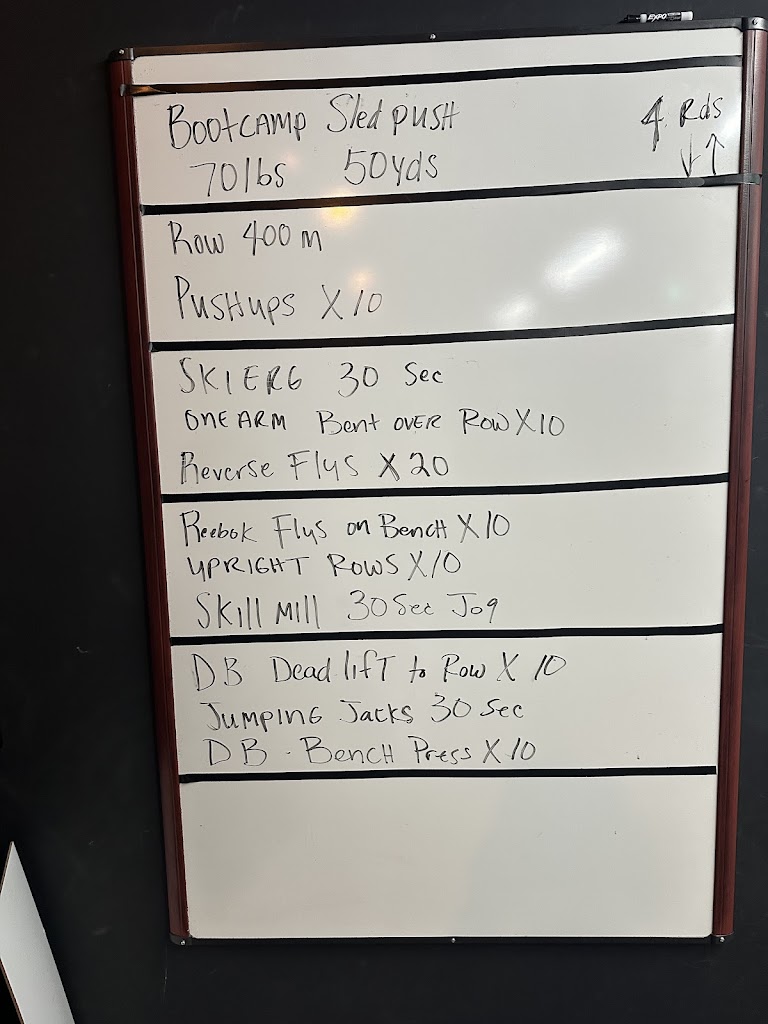 EXPO
BootCAMP Sled push 4 Rds
70lbs 50yds ↓↑
Row 400 m
PusHups X 10
SKIERG 30 Sec
ONE ARM Bent OVER Row X10
Reverse Flys X 20
Reebok Flys on BencH X10
UPRIGHT ROWS X10
Skill Mill 30 Sec Jog
DB Dead lifT to Row X 10
Jumping Jacks 30 Sec
DB - BencH Press X 10